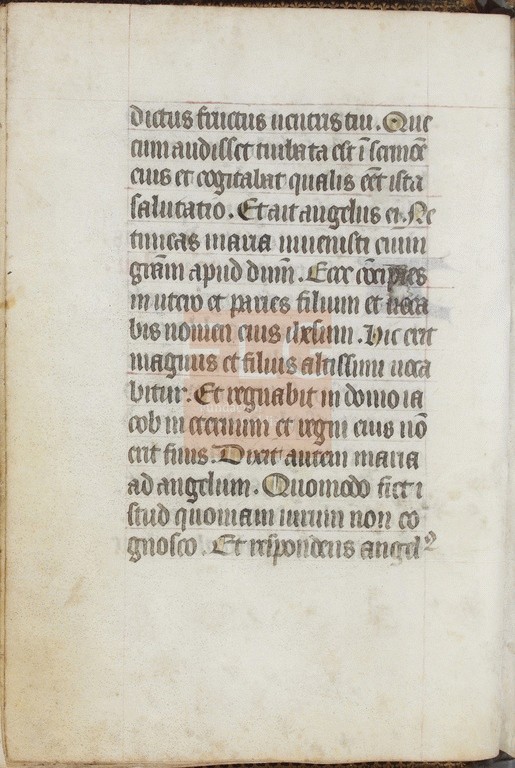 dictus fructus uentris tui. Que
cum audisset turbata est ī sermōe
eius et cogitabat qualis eēt ista
salutatio. Et ait angelus ei. Ne
timeas maria inuenisti enim
grām apud dūm. Ecce cōcipies
in utero et paries filium et uoca
bis nomen eius ihesum. Hic erit
magnus et filius altissimi uoca
bitur. Et regnabit in domo ia
cob in eternum et regni eius nō
erit finis. Dixit autem maria
ad angelum. Quomodo fiet i
stud quoniam uirum non co
gnosco. Et respondens angelꝰ